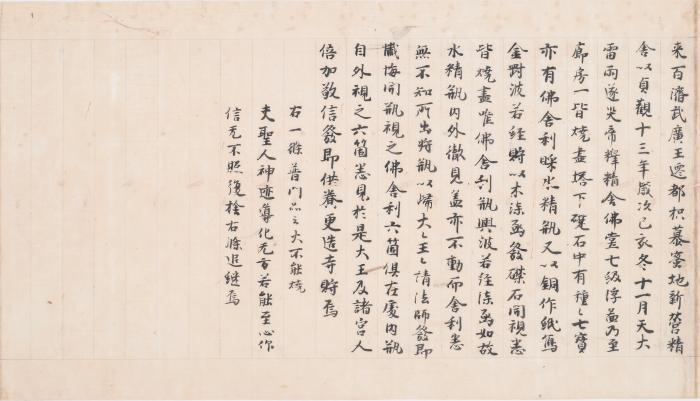 来百濟武廣王遷都枳慕蜜地新營精
舍以貞觀十三年歲次己亥冬十一月天大
雷雨遂災帝釋精舍佛堂七級浮啚乃至
廊房一皆燒盡塔下礎石中有種〻七寶
亦有佛舍利睬水精瓶又以銅作紙寫
金剛波若經貯以木漆函發礎石開視悉
皆燒盡唯佛舍利瓶與波若經漆函如故
水精瓶內外徹見盖亦不動而舍利悉
無不知所出將瓶以歸大〻王〻請法師發即
懺悔開瓶視之佛舍利六箇俱在處內瓶
自外視之六箇悉見於是大王及諸宮人
倍加敬信發即供養更造寺貯焉
右一條普門品云火不能燒
夫聖人神迹導化无方若能至心作
信无不照復拴右條追継焉